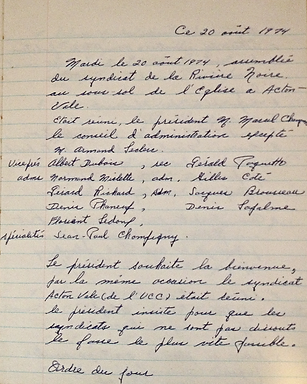 Ce 20 août 1974
Mardi le 20 août 1974, assemblée
du syndicat de la Rivière Noire
au sous sol de l'Eglise à Acton-
Vale.
Etait réuni, le président M. Marcel
le conseil d'administration excepté
M. Armand Leclerc.
Vice prés Albert Dubois, sec Gérald
adm Normand Miclette, adm. Gilles Côté
Gérard Richard, adm. Jacques Brousseau
Denis Phaneuf, Denis Lafalme
Florient Ledoux,
spécialiste, Jean-Paul Champigny.
Le président souhaite la bienvenue,
par la même occasion le syndicat
Acton Vale (de l'UCC) était réuni.
le président insiste pour que les
syndicats qui ne sont pas dissouts
le fasse le plus vite possible.
Ordre du jour